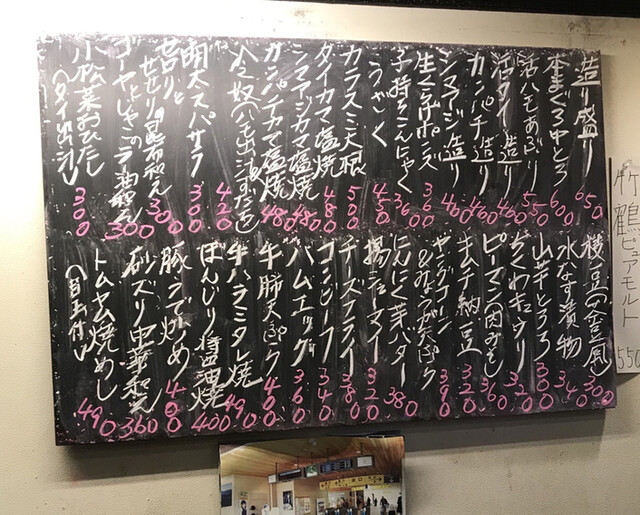 造り盛り 650
本まぐろ中とろ 600
活ハモあぶり 550
活タイ造り 460
カンパチ造り 460
シマアジ造り 460
生ゆばポンズ 360
子持ちこんにゃく 360
うざく 450
カラスミ大根 500
タイカマ塩焼 480
シマアジカマ塩焼 480
カンパチカマ塩焼 480
冷奴(ハモ出汁すだち) 420
明太スパサラ 300
せせり昆布和え 300
ゴーヤとじゃこのラー油和え 300
小松菜おひたし 300
(タイ出汁)
枝豆 300
水なす漬物
山芋とろろ 300
ちくわキュウリ
ピーマン肉みそ 360
キムチ納豆 320
ヤングコーン
&みょうが天ぷら 390
にんにく芽バター 380
揚シューマイ 320
チーズフライ 380
コンビーフ 340
ハムエッグ 360
牛肺天ぷら 400
牛ハラミタレ焼 490
ぼんじり醤油焼 400
豚うで炒め 400
砂ズリ中華和え 360
トムヤム焼めし 490
(目玉付)
竹鶴ピュアモルト 550